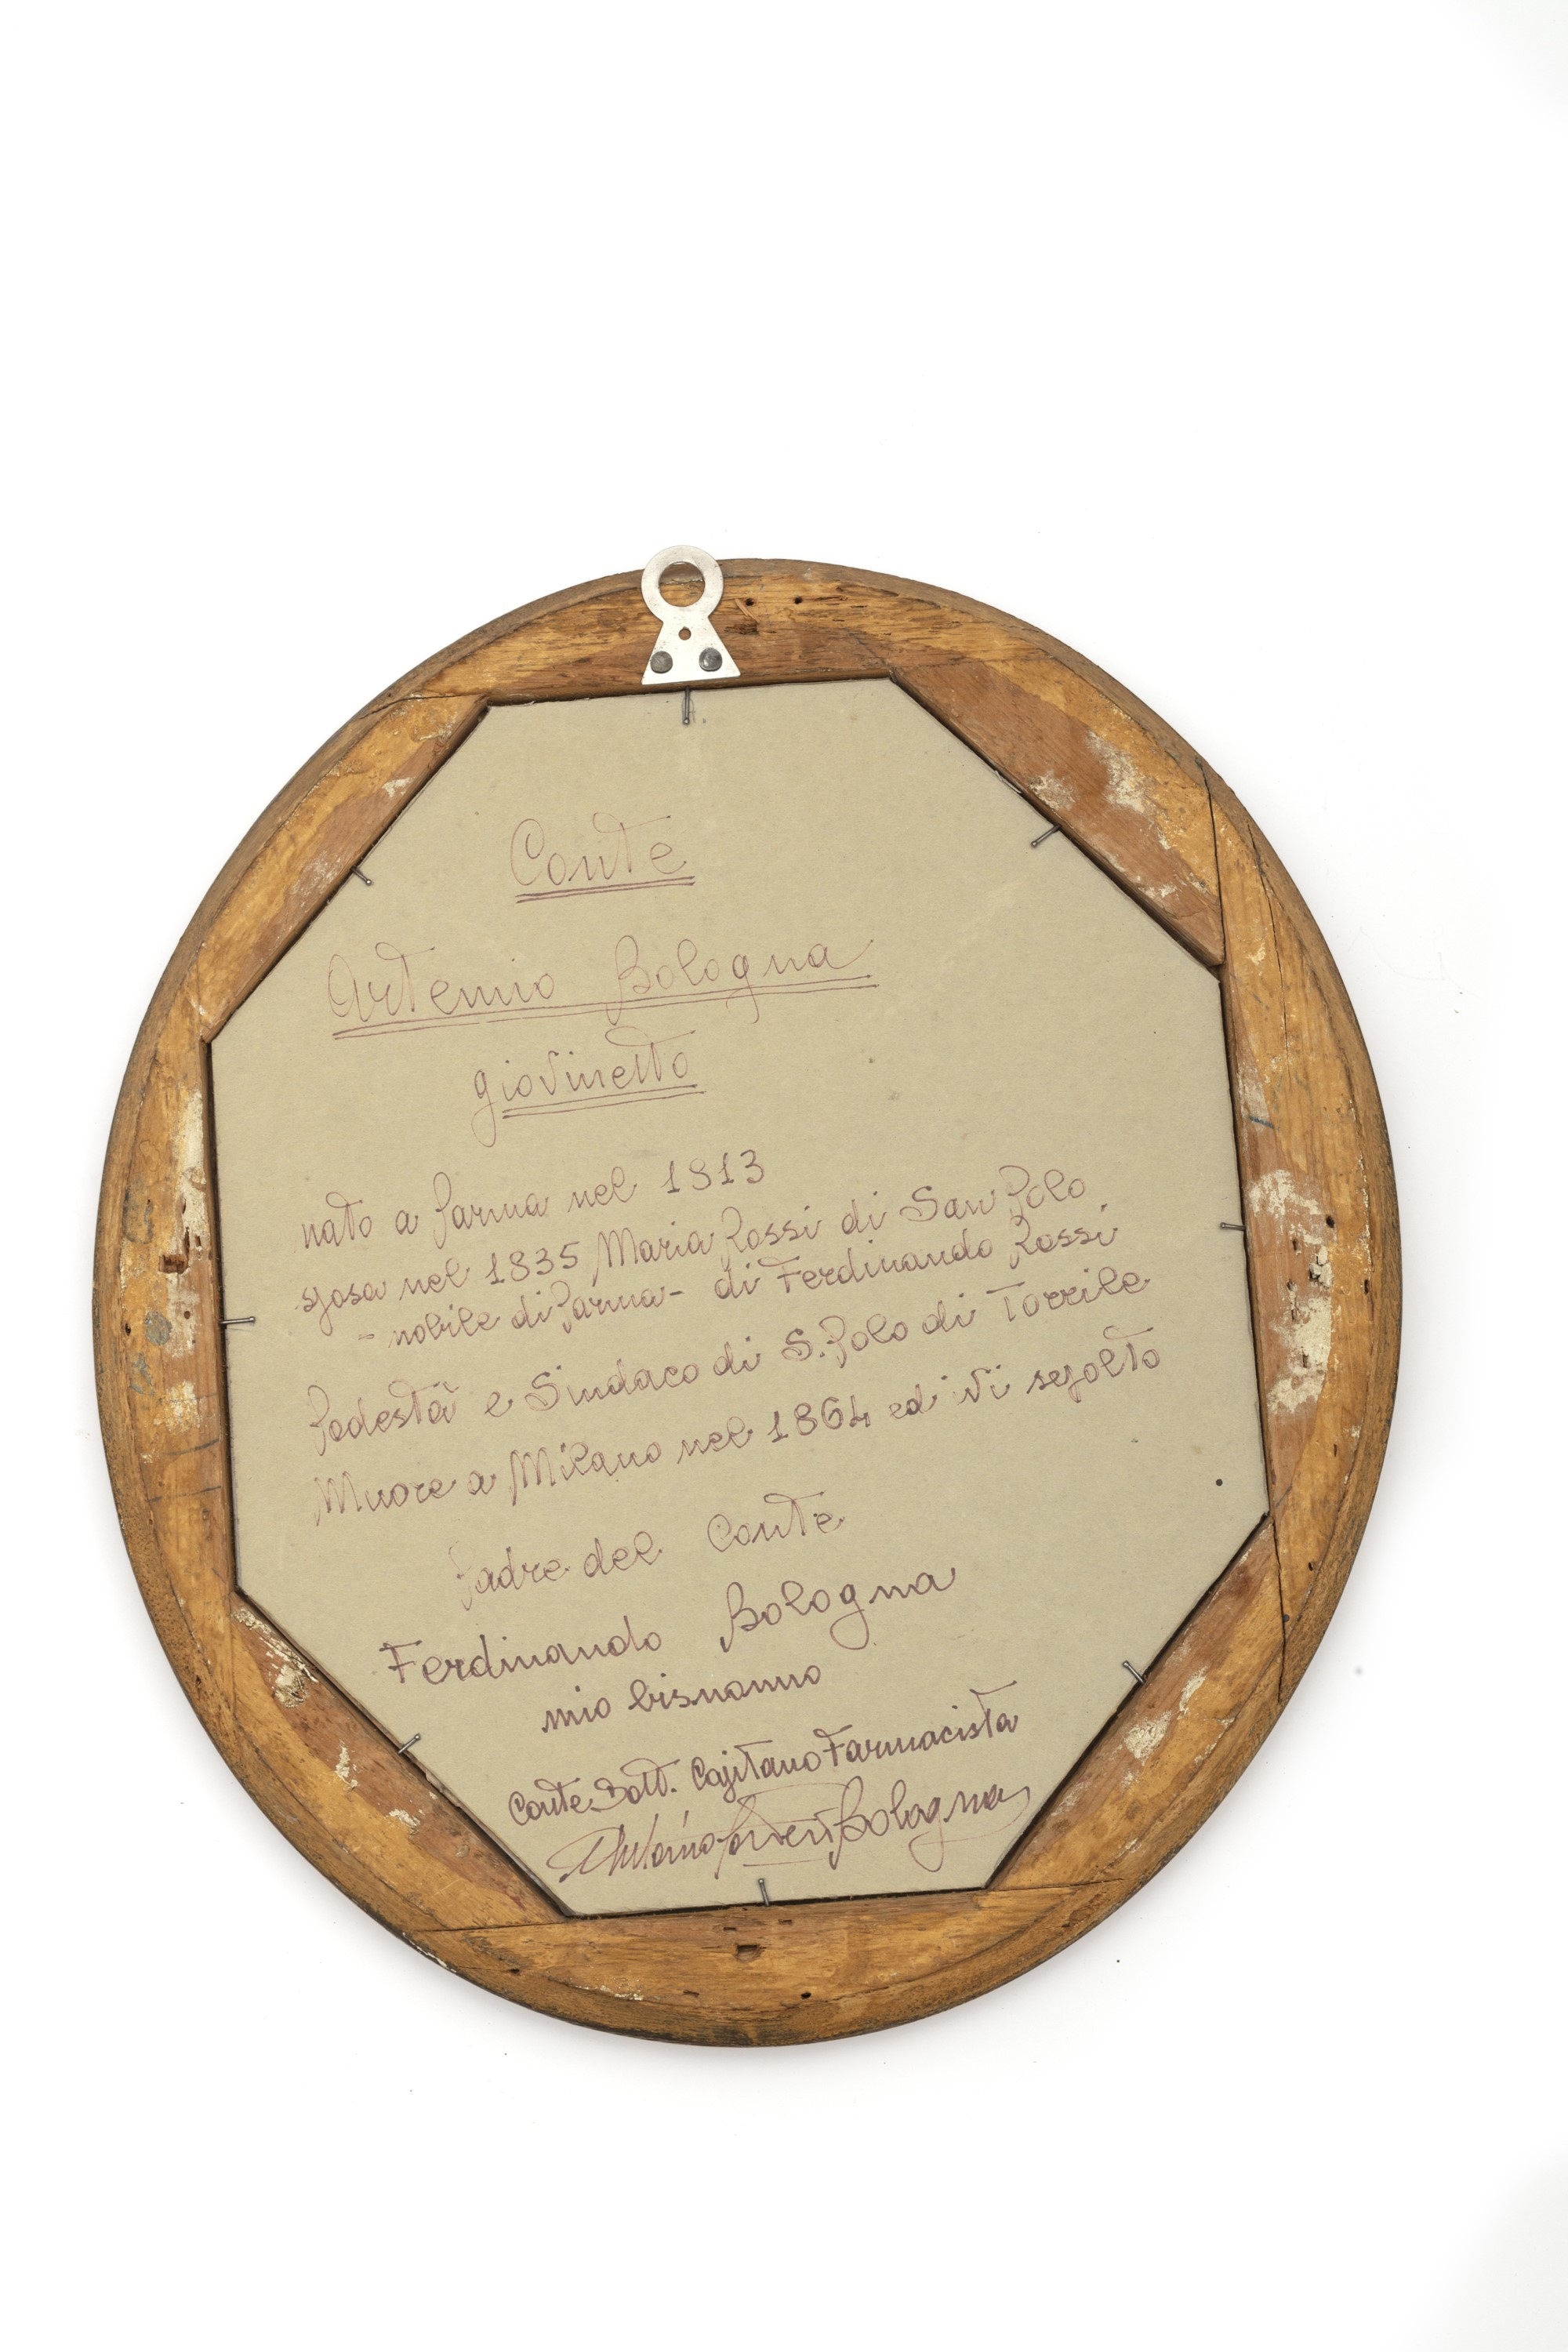 Conte
Artemio Bologna
giovinetto
nato a Parma nel 1813
sposa nel 1835 Maria Rossi di San Polo
- nobile di Parma - di Ferdinando Rossi
Podestà e Sindaco di S. Polo di Torrile
Muore a Milano nel 1864 ed ivi sepolto
Padre del Conte
Ferdinando Bologna
mio bisnonno
Conte Dott. Capitano Farmacista
Antonio Bologna